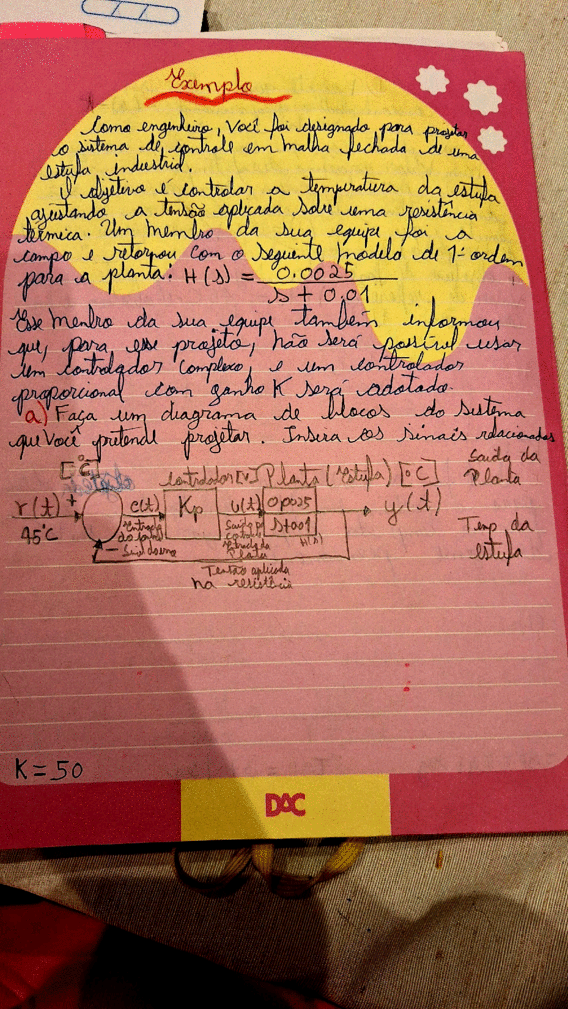 Exemplo
Como engenheiro, você foi designado para projetar
o sistema de controle em malha fechada de uma
estufa industrial.
O objetivo é controlar a temperatura da estufa
ajustando a tensão aplicada sobre uma resistência
térmica. Um membro da sua equipe foi a
campo e retornou com o seguinte modelo de 1ª ordem
para a planta: H(s) = 0.0025
s + 0.01
Esse membro da sua equipe também informou
que, para esse projeto, não será possível usar
um controlador complexo, e um controlador
proporcional com ganho K será adotado.
a) Faça um diagrama de blocos do sistema
que você pretende projetar. Insira os sinais relacionados
[°C] Controlador [V] Planta (Estufa) [°C] Saída da
Planta
r(t) + e(t) Kp u(t) 0,0025 y(t)
45°C s+0.01
H(s)
Temp da
estufa
Tensão aplicada
na resistência
K = 50
DAC